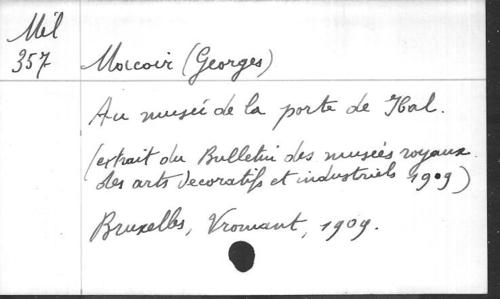 Mél
357
Macoir (Georges)
Au musée de la porte de Hal.
(extrait du Bulletin des musées royaux
des arts decoratifs et industriels 1909)
Bruxelles, Vromant, 1909.